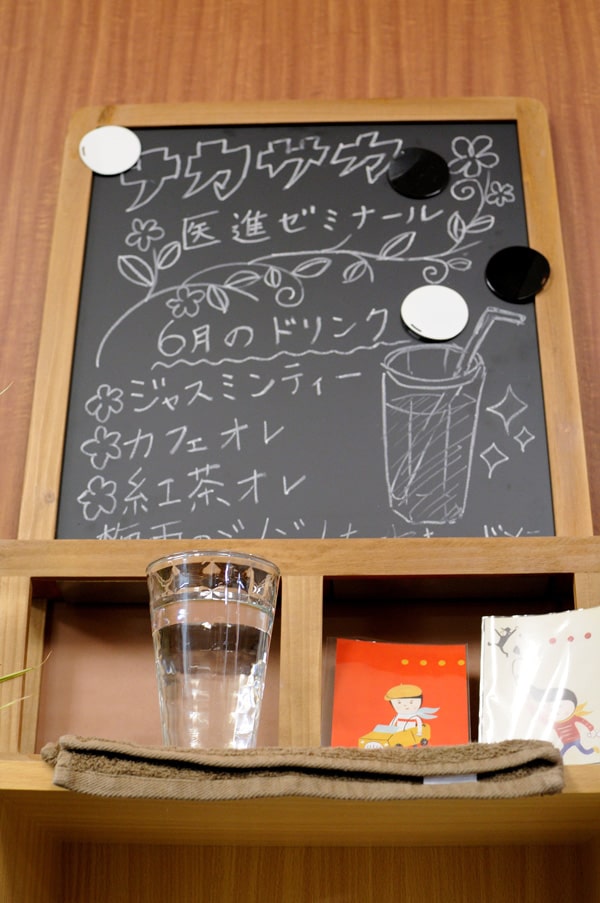 ナカザカ
医進ゼミナール
6月のドリンク
ジャスミンティー
カフェオレ
紅茶オレ